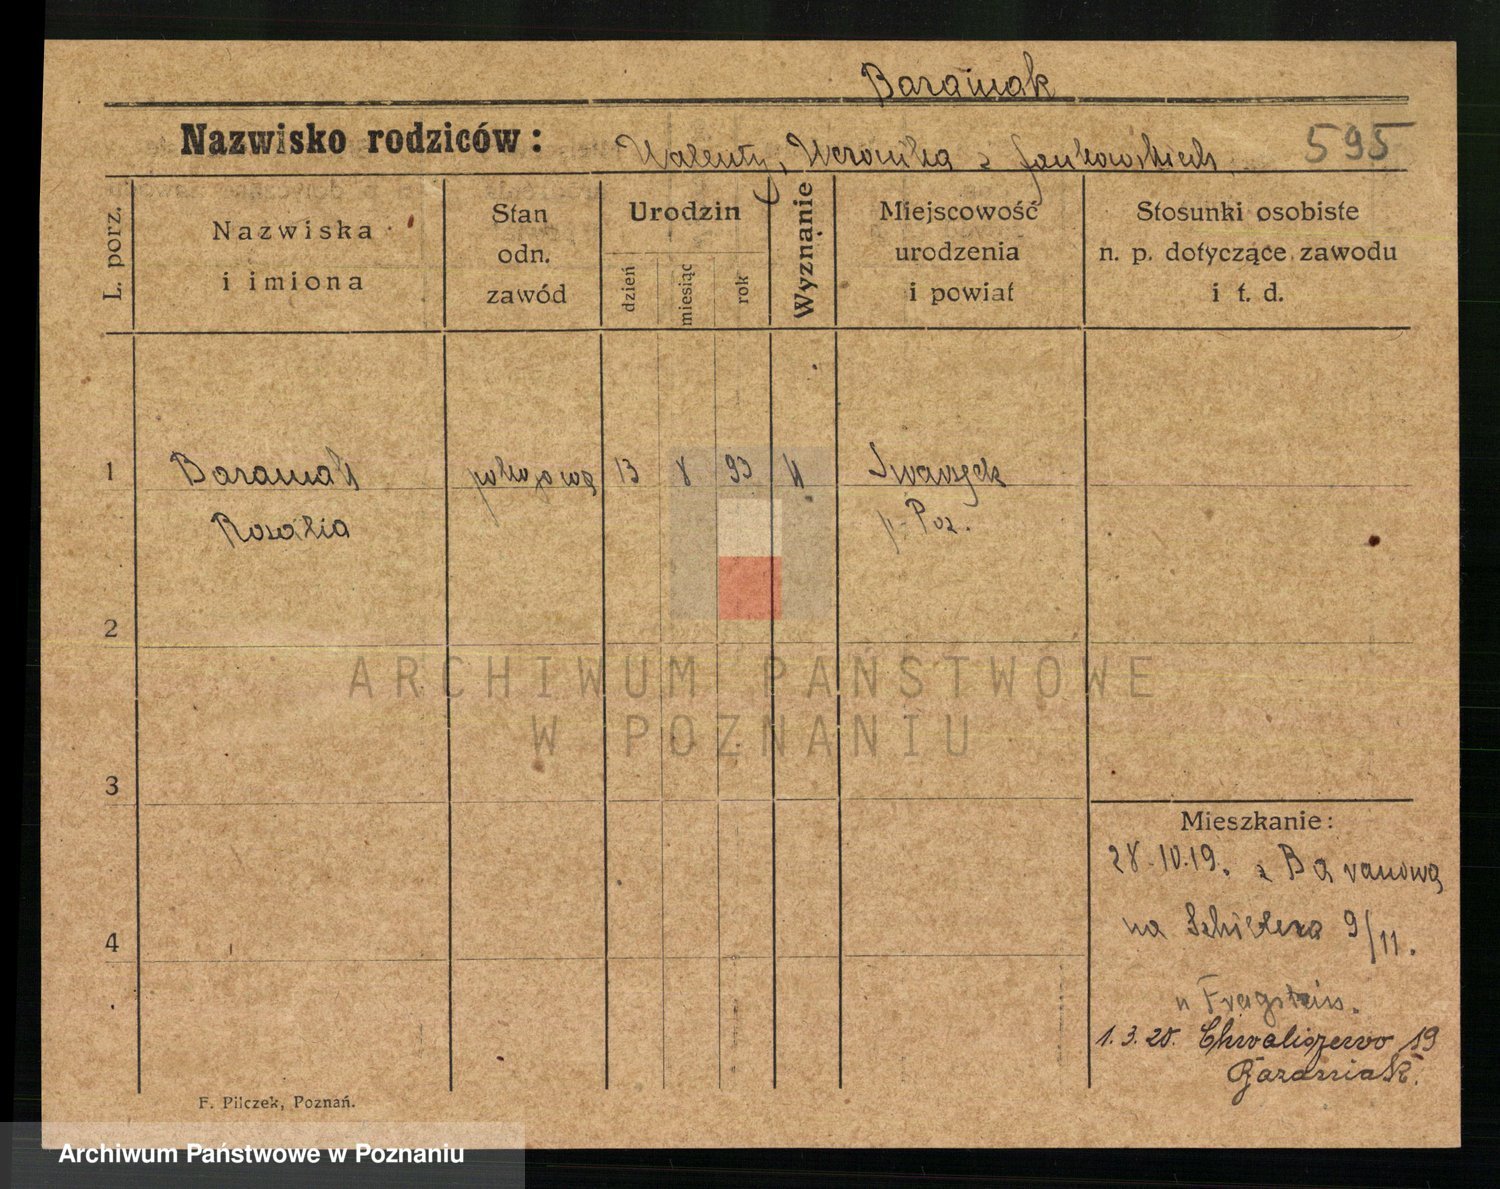 Baraniak
Nazwisko rodziców: Walenty, Weronika z Jankowskich 595
L. porz.
Nazwiska i imiona
Stan odn. zawód
Urodzin
dzień miesiąc rok
Wyznanie
Miejscowość urodzenia i powiat
Stosunki osobiste n. p. dotyczące zawodu i t. d.
1 Baraniak pokojowa 13 8 93 k Swarzędz
Rozalia p. Poz.
2
ARCHIWUM PAŃSTWOWE
W POZNANIU
3
Mieszkanie:
28.10.19. z Baranowa
4
na Schillera 9/11.
u Fragstein.
1.3.20. Chwaliszewo 19
Baraniak.
F. Pilczek, Poznań.
Archiwum Państwowe w Poznaniu